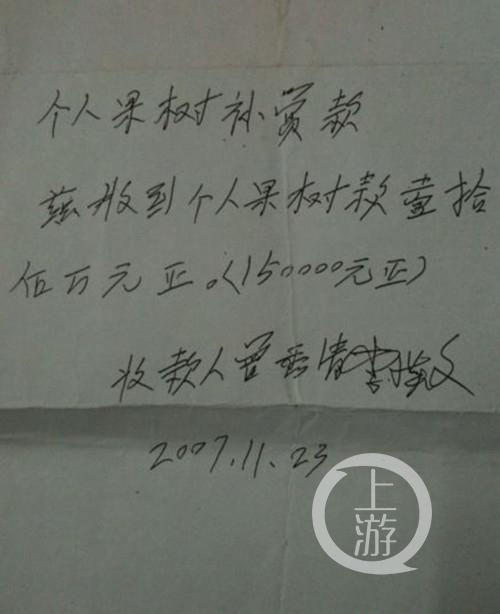 个人果树补赏款
兹收到个人果树款壹拾
伍万元正。(150000元正)
收款人曾
2007.11.23
上游